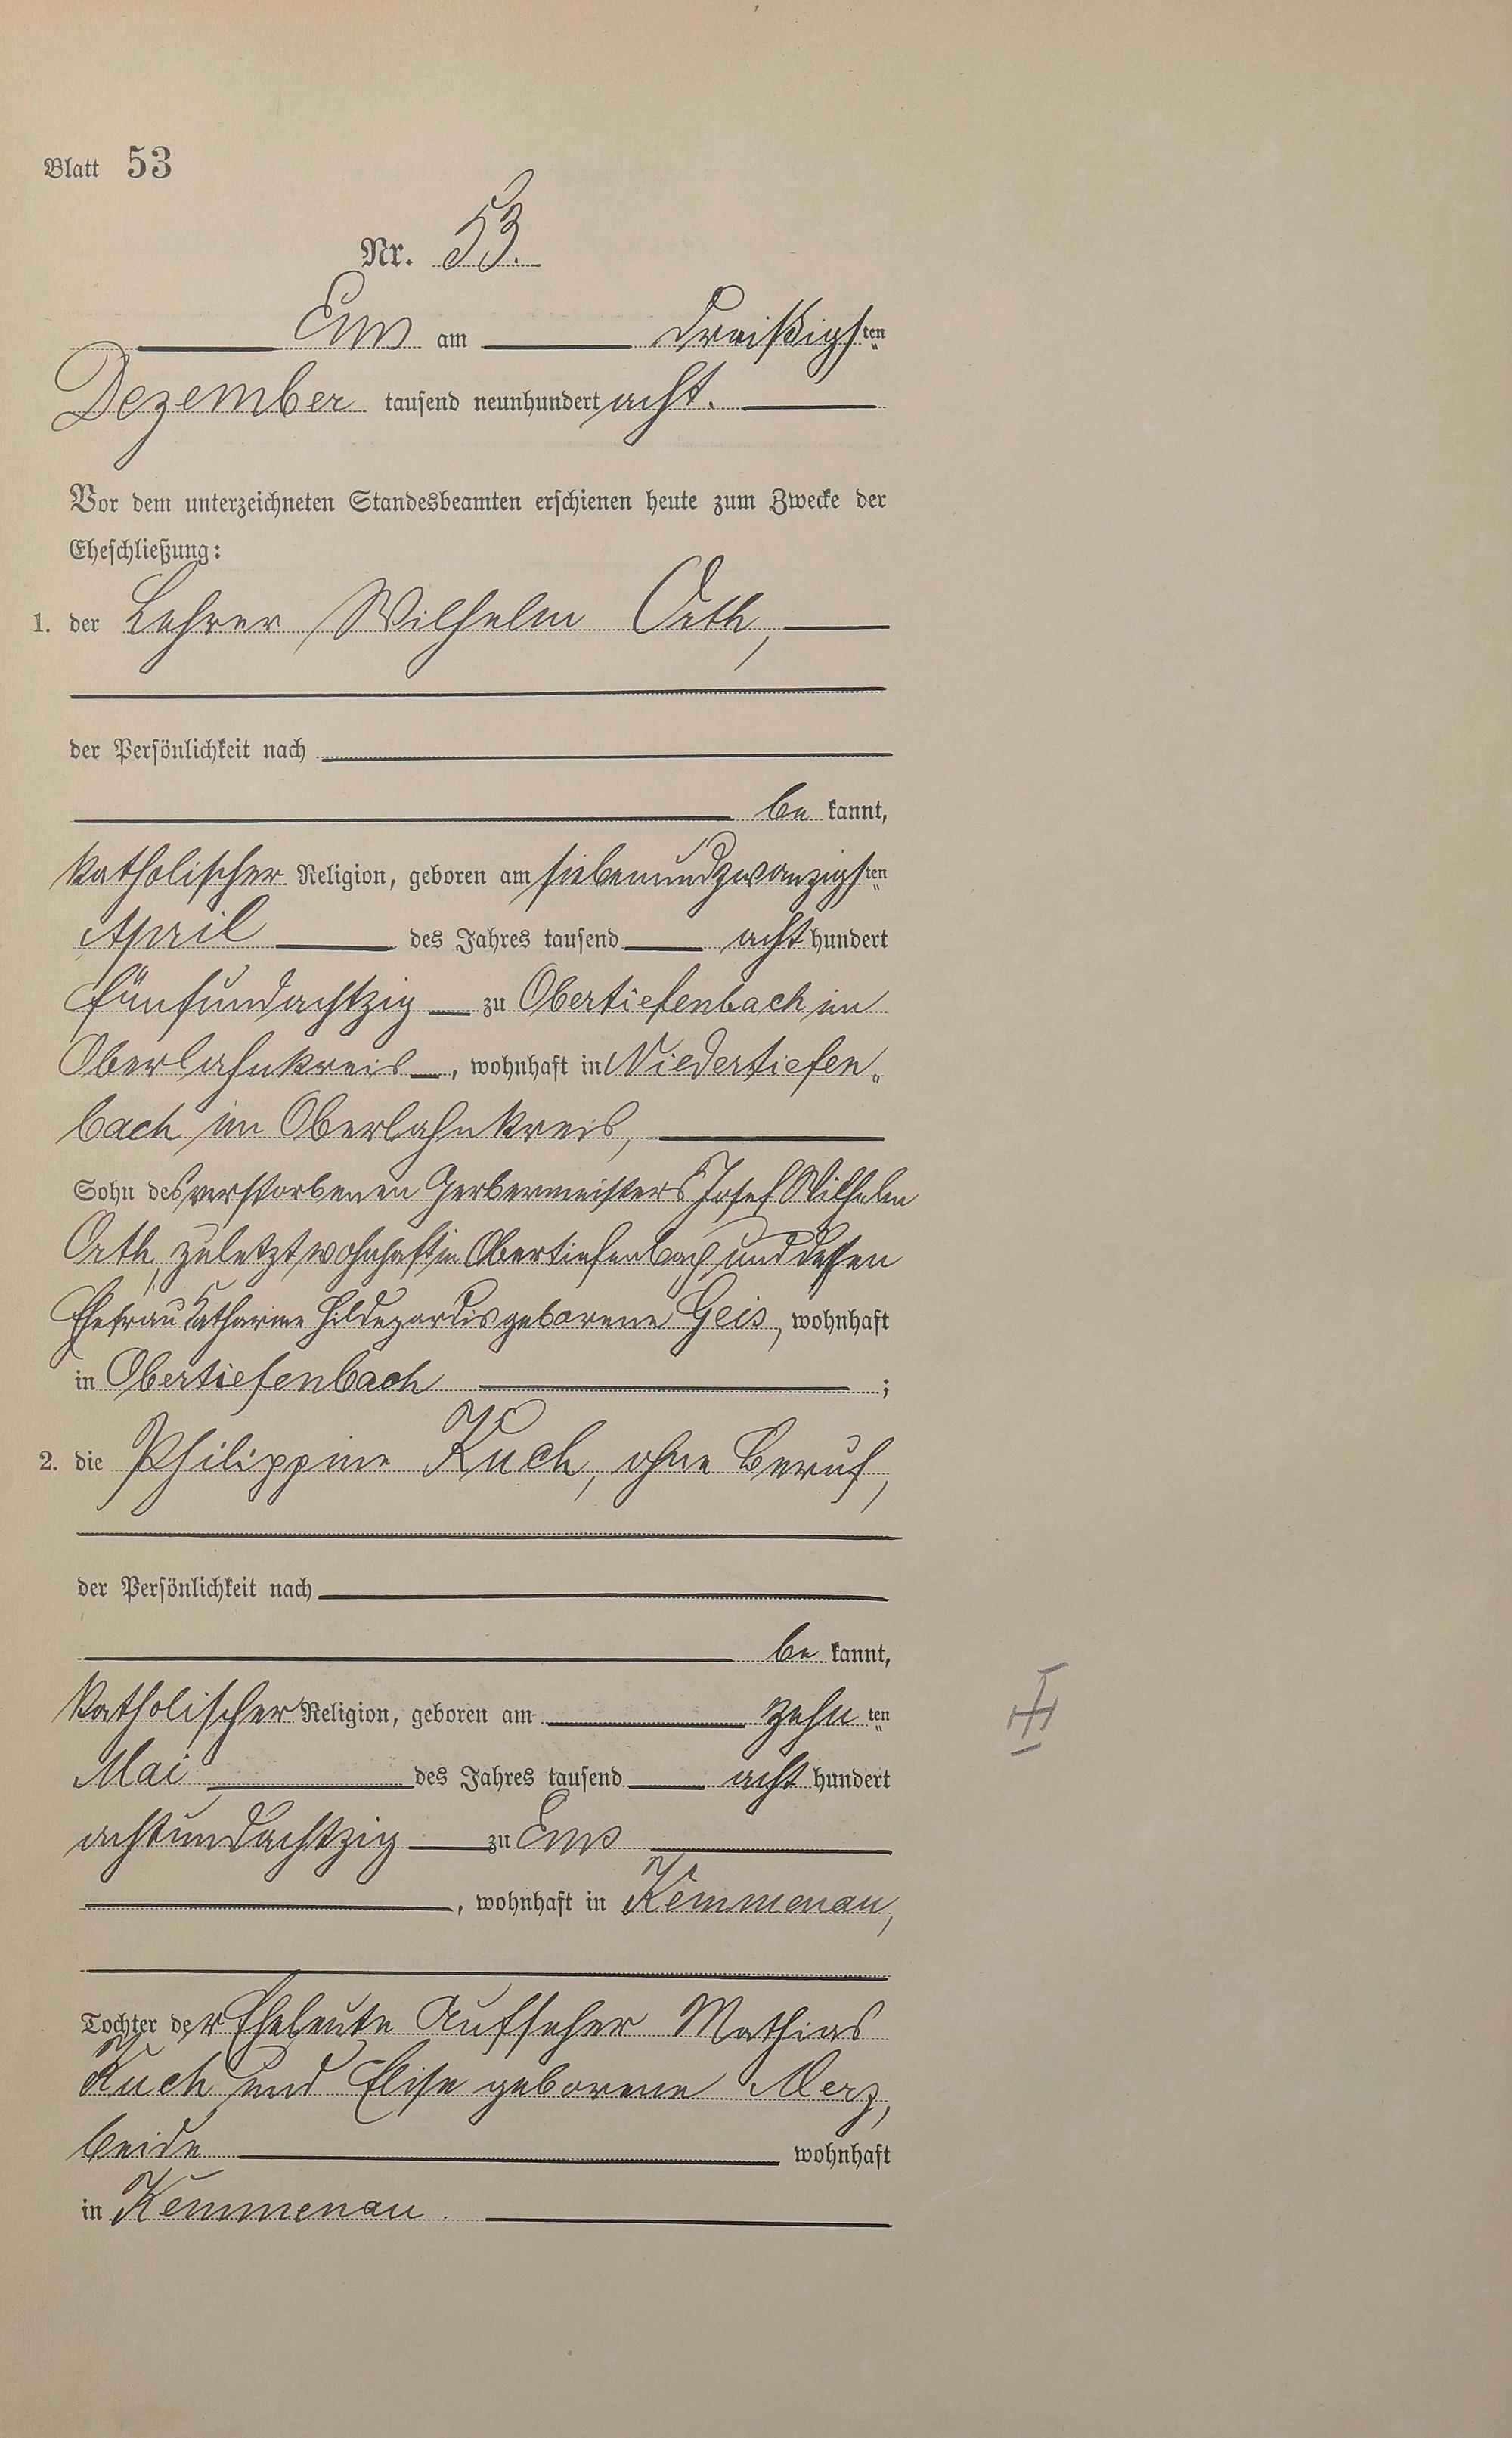 Blatt 53
Nr. 53.
Ems am dreißigsten
Dezember tausend neunhundert acht.
Vor dem unterzeichneten Standesbeamten erschienen heute zum Zwecke der
Eheschließung:
1. der Lehrer Wilhelm Orth,
der Persönlichkeit nach
be kannt,
katholischer Religion, geboren am siebenundzwanzigsten
April des Jahres tausend acht hundert
fünfundachtzig zu Obertiefenbach im
Oberlahnkreis, wohnhaft in Niedertiefen-
bach im Oberlahnkreis,
Sohn des verstorbenen Gerbermeisters Josef Wilhelm
Orth, zuletzt wohnhaft in Obertiefenbach und dessen
Ehefrau Katharine Hildegardis geborene Geis, wohnhaft
in Obertiefenbach ;
2. die Philippine Kuch, ohne Beruf,
der Persönlichkeit nach
be kannt,
katholischer Religion, geboren am zehn ten
Mai des Jahres tausend acht hundert
achtundachtzig zu Ems
, wohnhaft in Kemmenau,
Tochter der Eheleute Aufseher Mathias
Kuch und Elise geborene Merz,
beide wohnhaft
in Kemmenau.